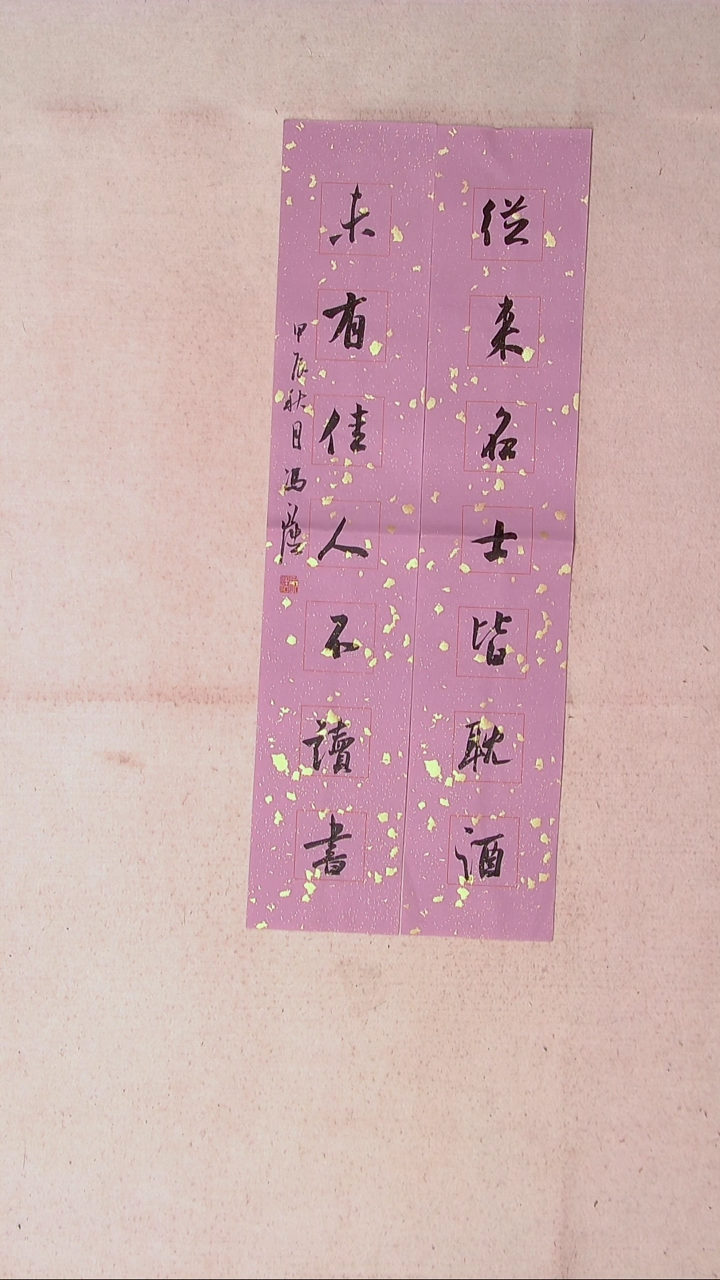 從来名士皆耽酒
未有佳人不讀書
甲辰秋月冯